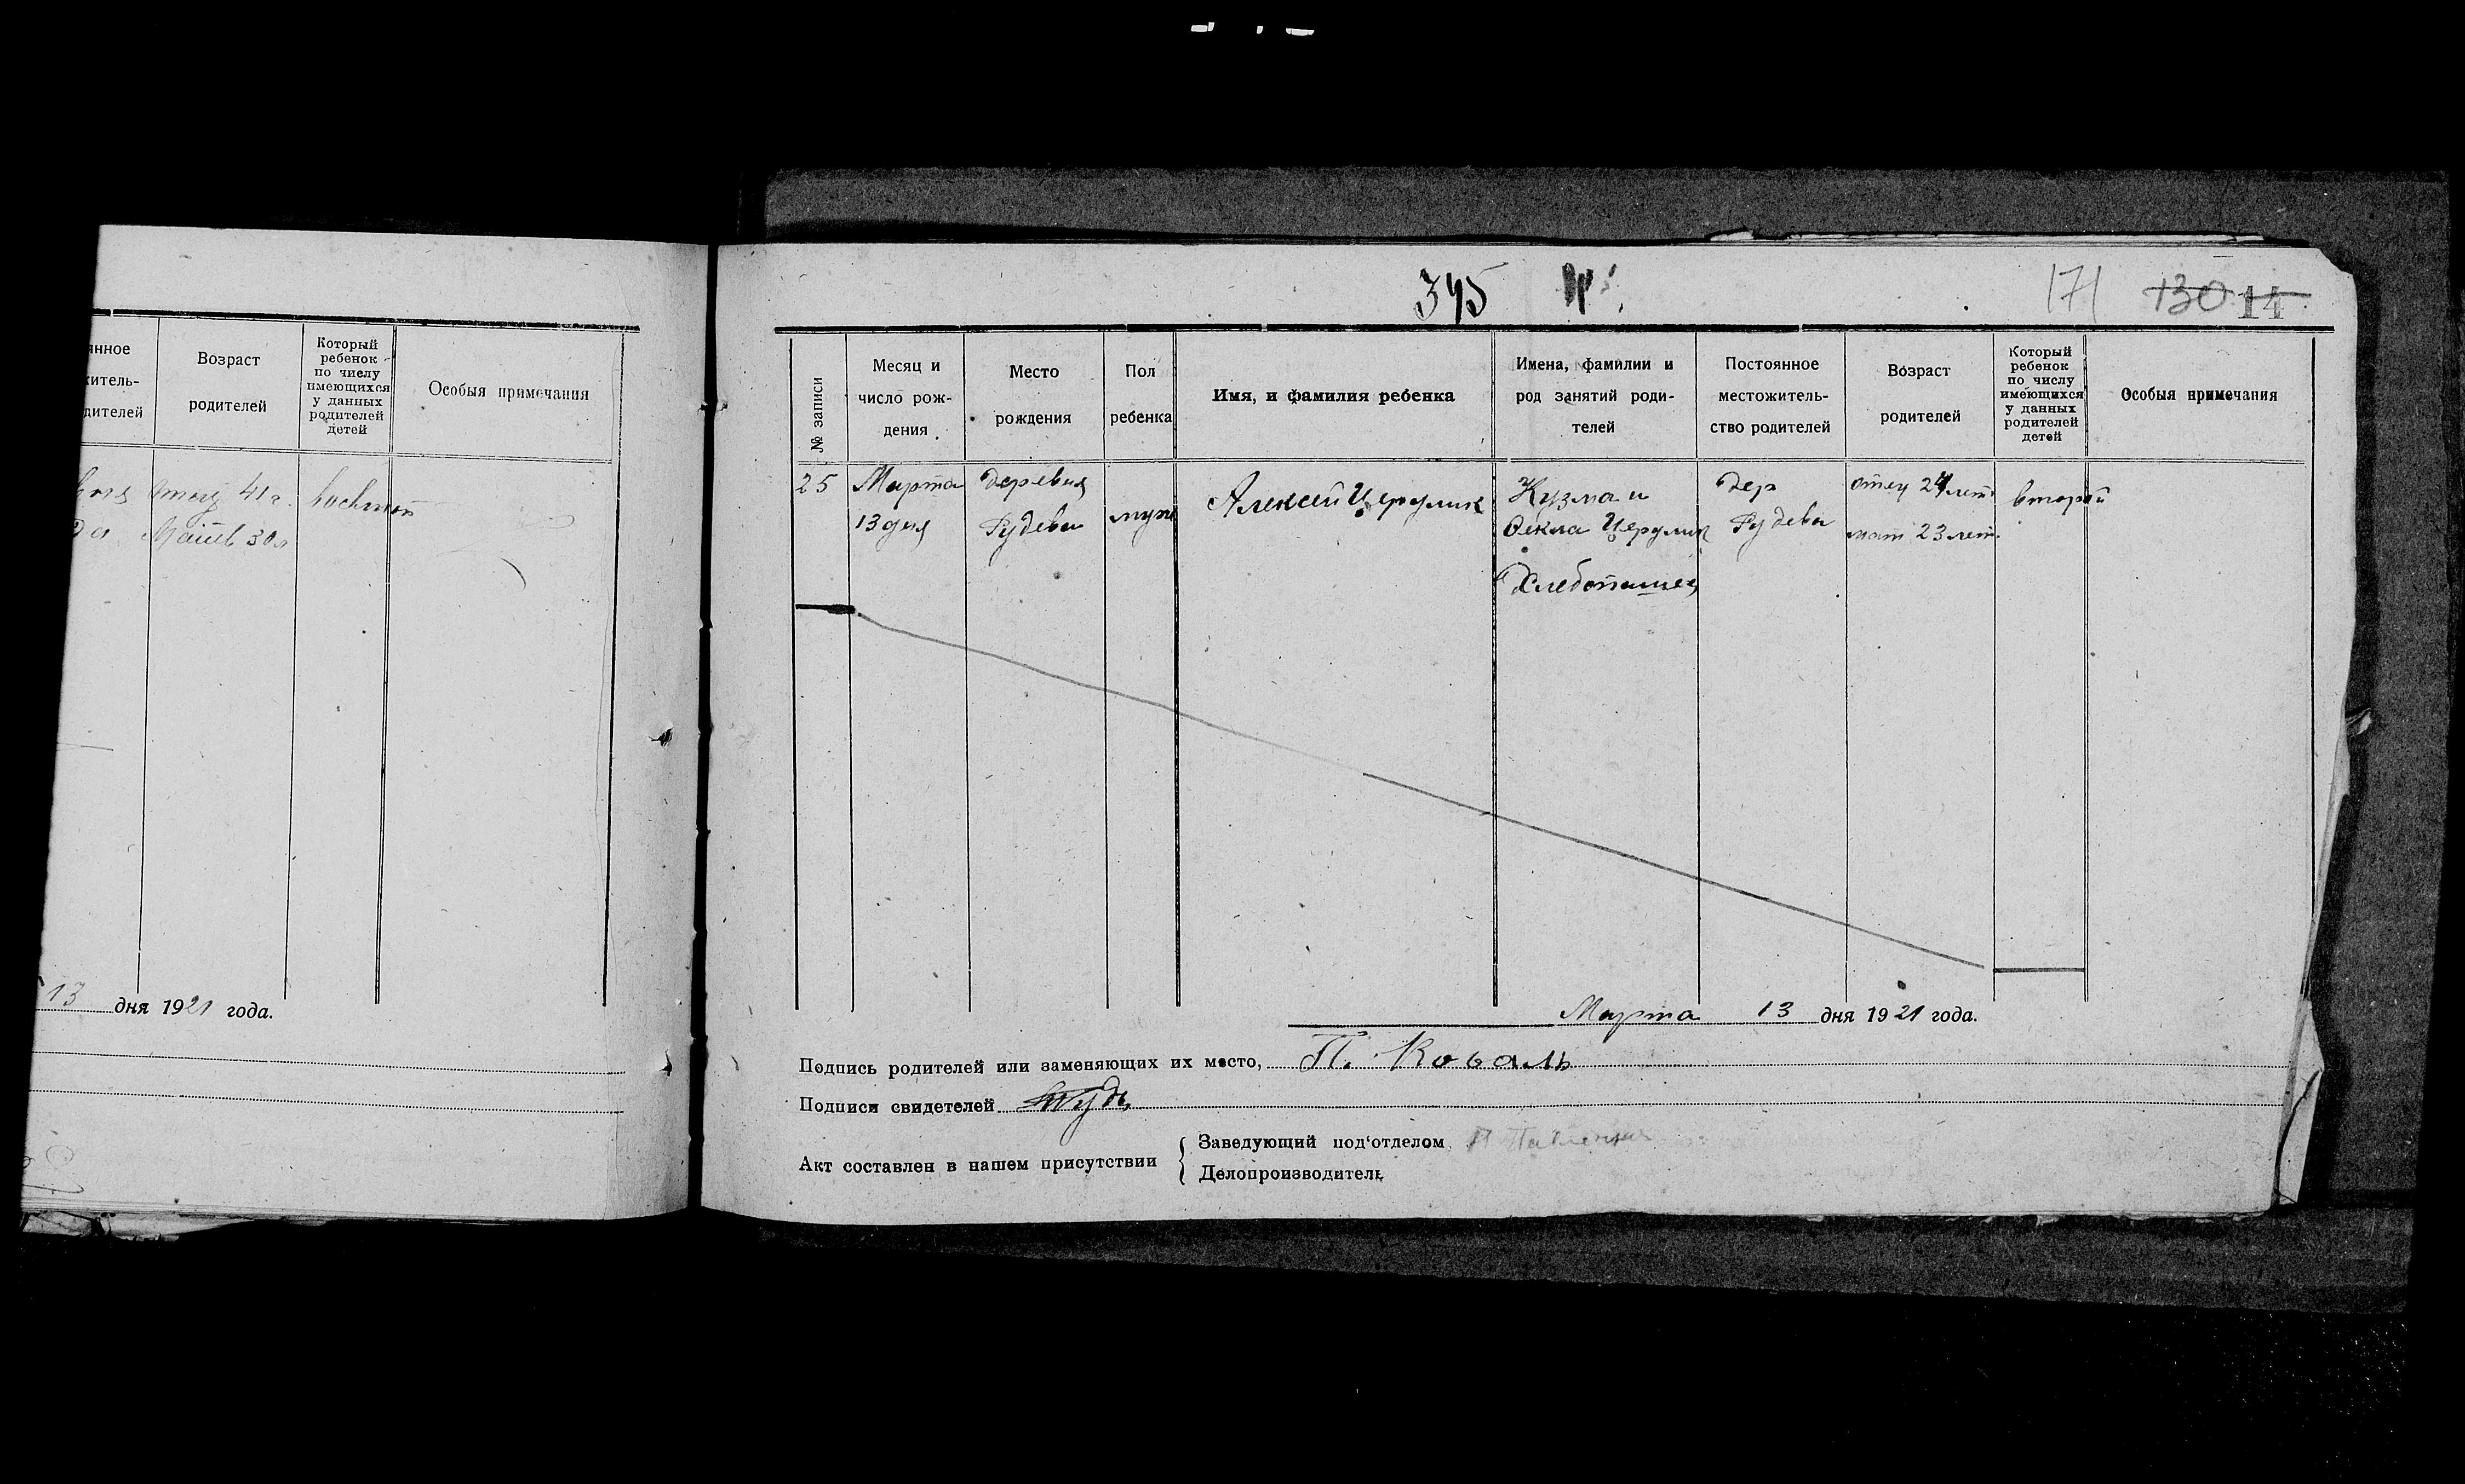 янное
житель-
дителей
Возраст
родителей
Который
ребенок
по числу
имеющихся
у данных
родителей
детей
Особыя примечания
41 г.
30 л
13 дня 1921 года.
345
171 130 14
№ записи
Месяц и
число рож-
дения
Место
рождения
Пол
ребенка
Имя, и фамилия ребенка
Имена, фамилии и
род занятий роди-
телей
Постоянное
местожитель-
ство родителей
Возраст
родителей
Который
ребенок
по числу
имеющихся
у данных
родителей
детей
Особыя примечания
25
Марта
13 дня
деревня
муж
Алексей
Кузма и
Фекла
Хлебопашец
дер
отец 24 лет
мат 23 лет.
второй
Марта 13 дня 1921 года.
Подпись родителей или заменяющих их место, П. Коваль
Подписи свидетелей
Акт составлен в нашем присутствии
Заведующий под'отделом
Делопроизводитель